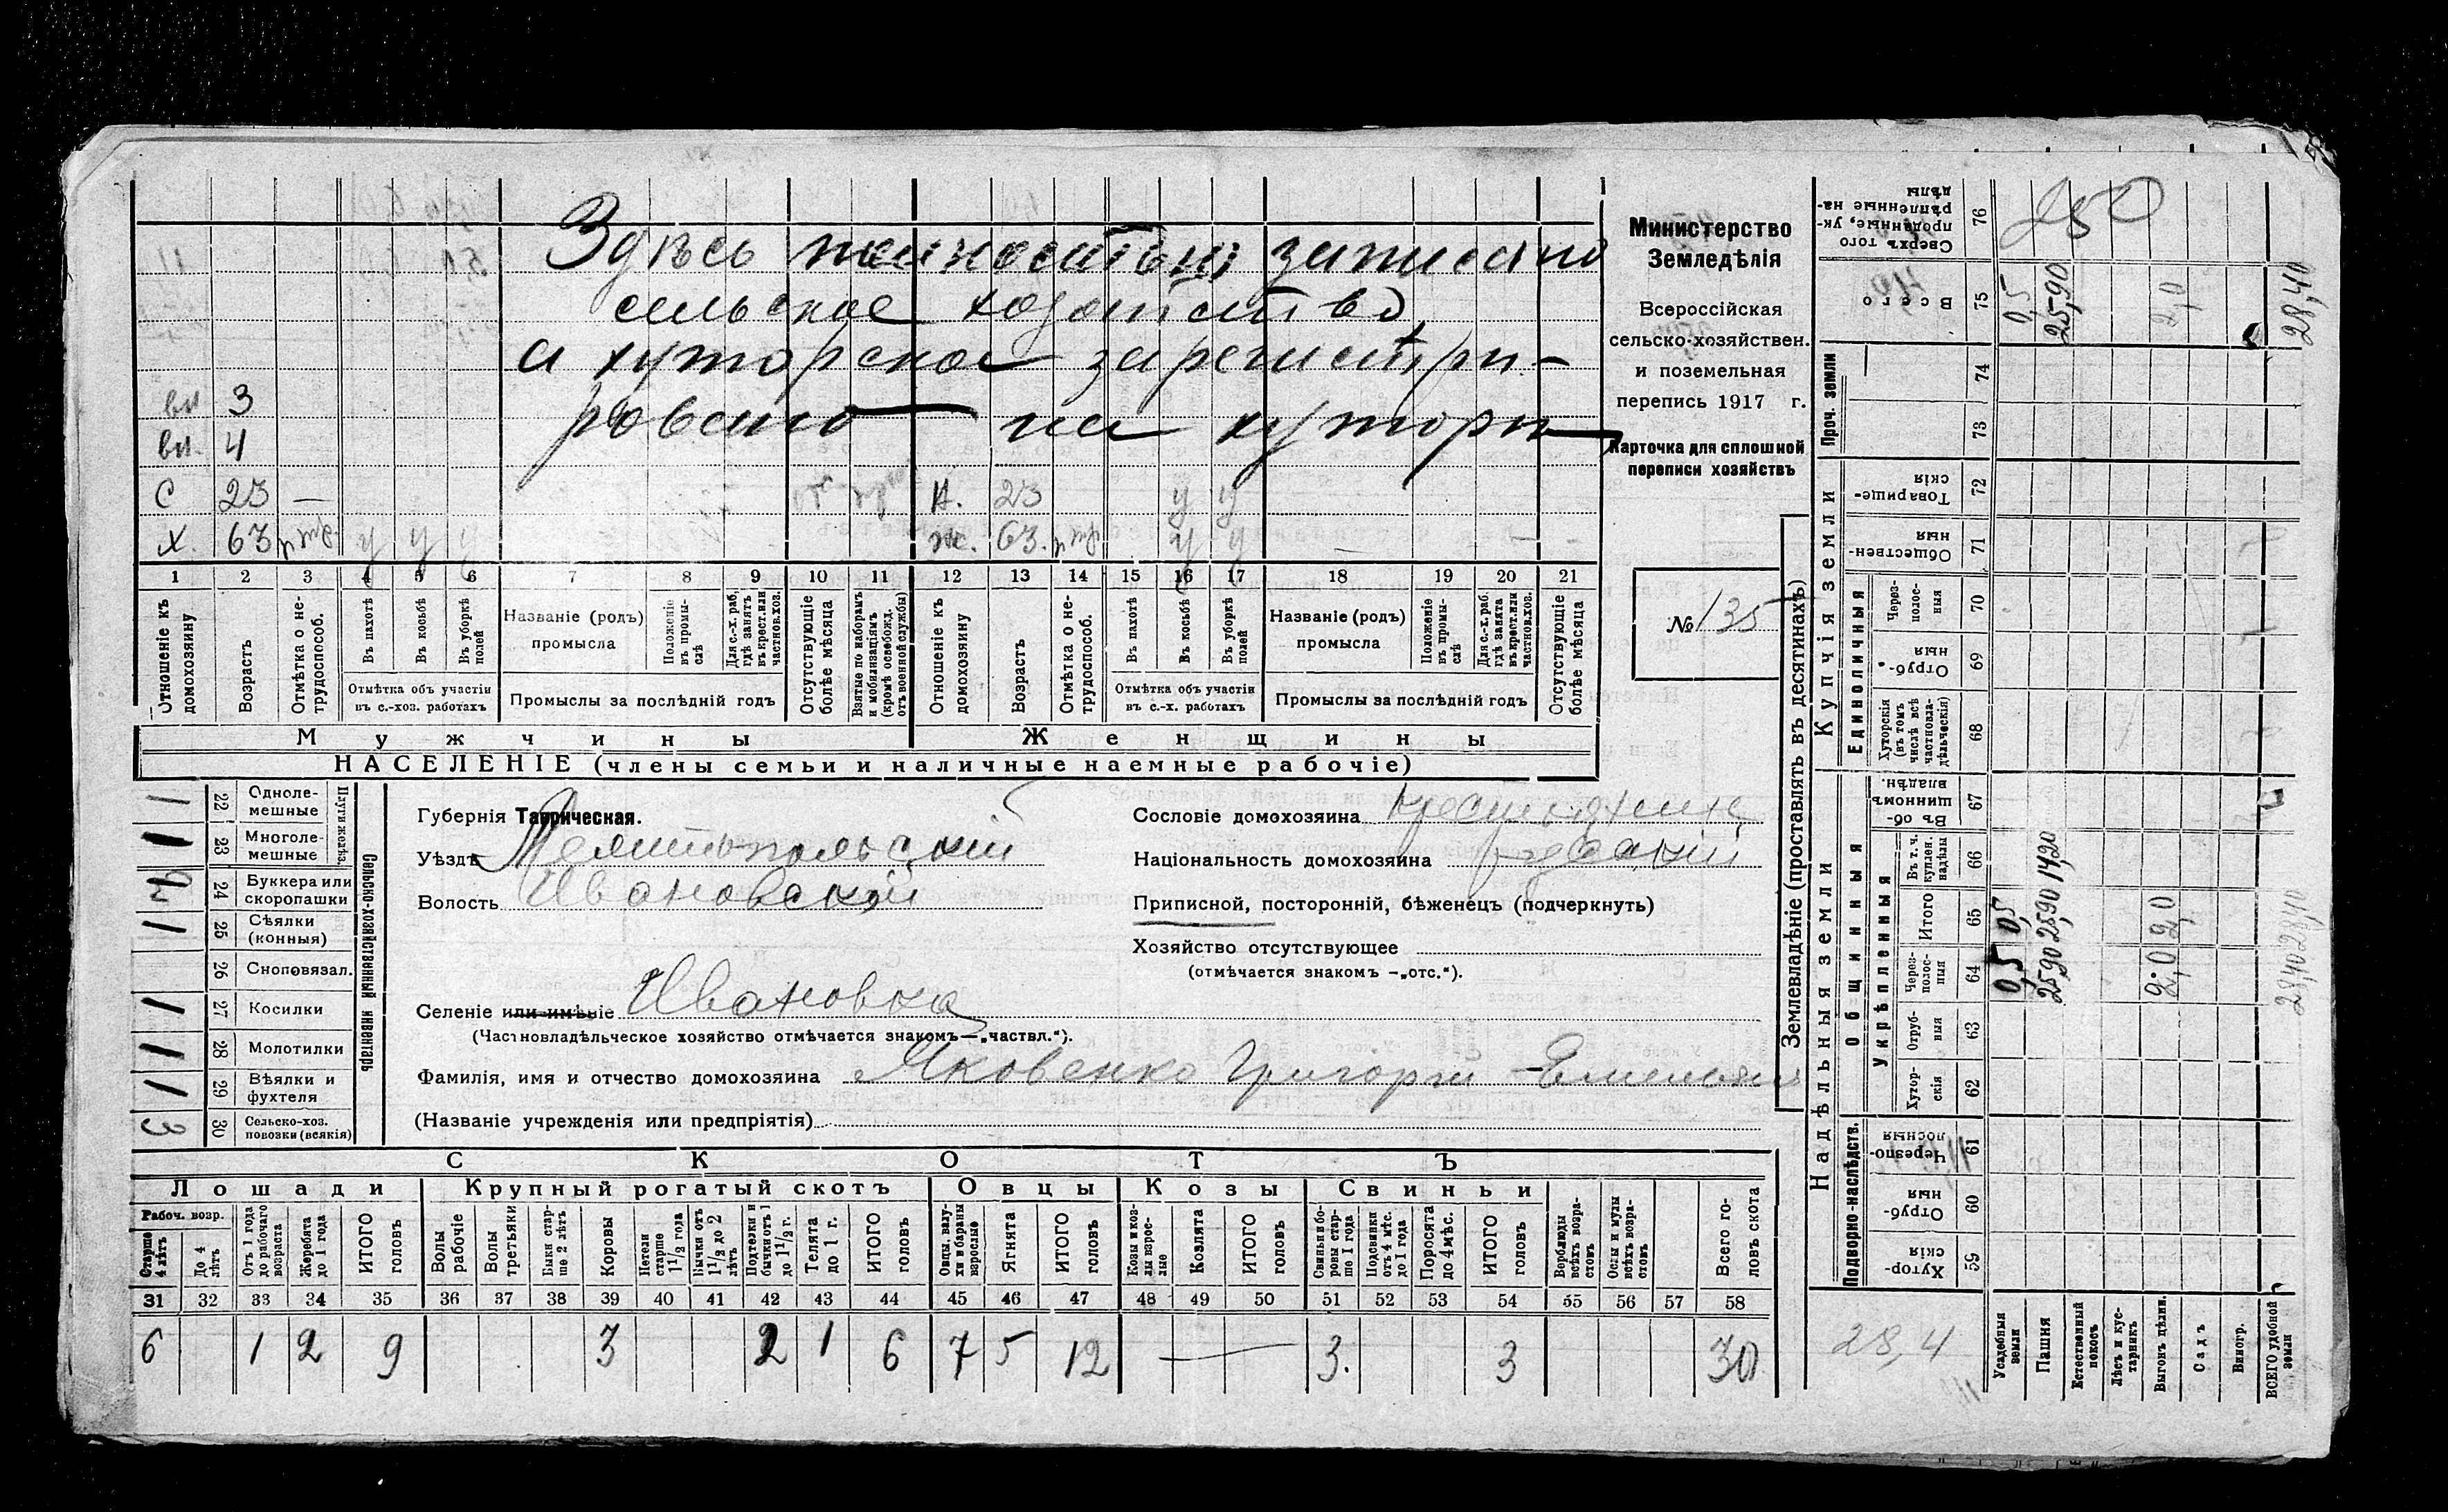 Здѣсь полностью записано
сельское хозяйство
а хуторское зарегистри-
ровано на хуторѣ
вн 3
вн. 4
С 23 — н. 23 у у
Х. 63 у у у ж. 63. у у
1 2 3 4 5 6 7 8 9 10 11 12 13 14 15 16 17 18 19 20 21
Отношеніе къ домохозяину
Возрастъ
Отмѣтка о не-трудоспособ.
Въ пахотѣ
Въ косьбѣ
Въ уборкѣ полей
Отмѣтка объ участіи въ с.-хоз. работахъ
Названіе (родъ) промысла
Положеніе въ промы-слѣ
Для с.-х. раб, гдѣ занятъ въ крест. или частнов. хоз.
Промыслы за послѣдній годъ
Отсутствующіе болѣе мѣсяца
Взятые по наборамъ и мобилизаціямъ (кромѣ освобожд. отъ военной службы)
Отношеніе къ домохозяину
Возрастъ
Отмѣтка о не-трудоспособ.
Въ пахотѣ
Въ косьбѣ
Въ уборкѣ полей
Отмѣтка объ участіи въ с.-х. работахъ
Названіе (родъ) промысла
Положеніе въ промы-слѣ
Для с.-х. раб. гдѣ занята въ крест. или частнов. хоз.
Промыслы за послѣдній годъ
Отсутствующіе болѣе мѣсяца
Мужчины Женщины
НАСЕЛЕНІЕ (члены семьи и наличные наемные рабочіе)
Министерство
Земледѣлія
Всероссійская
сельско-хозяйствен.
и поземельная
перепись 1917 г.
Карточка для сплошной
переписи хозяйствъ
№ 135
1 22 Одноле-мешные
1 23 Многоле-мешные
Плуги желѣз.
2 24 Буккера или скоропашки
1 25 Сѣялки (конныя)
26 Сноповязал.
1 27 Косилки
1 28 Молотилки
1 29 Вѣялки и фухтеля
3 30 Сельско-хоз. повозки (всякія)
Сельско-хозяйственный инвентарь
Губернія Таврическая.
Уѣздъ Мелитопольскій
Волость Ивановской
Селеніе или имѣніе Ивановка
(Частновладѣльческое хозяйство отмѣчается знакомъ—„частвл.“).
Фамилія, имя и отчество домохозяина Яковенко Григорій Емельян
(Названіе учрежденія или предпріятія)
Сословіе домохозяина крестьянинъ
Національность домохозяина русскій
Приписной, посторонній, бѣженецъ (подчеркнуть)
Хозяйство отсутствующее
(отмѣчается знакомъ —„отс.“).
СКОТЪ
Лошади Крупный рогатый скотъ Овцы Козы Свиньи
Рабоч. возр.
Старше 4 лѣтъ
До 4 лѣтъ
Отъ 1 года до рабочаго возраста
Жеребята до 1 года
ИТОГО головъ
Волы рабочіе
Волы третьяки
Быки стар-ше 2 лѣтъ
Коровы
Нетели старше 1 1/2 года
Бычки отъ 1 1/2 до 2 лѣтъ
Подтелки и бычки отъ 1 до 1 1/2 г.
Телята до 1 г.
ИТОГО головъ
Овцы, валу-хи и бараны взрослые
Ягнята
ИТОГО головъ
Козы и коз-лы взрос-лые
Козлята
ИТОГО головъ
Свиньи и бо-ровы стар-ше 1 года
Подсвинки отъ 4 мѣс. до 1 года
Поросята до 4 мѣс.
ИТОГО головъ
Верблюды всѣхъ возра-стовъ
Ослы и мулы всѣхъ возра-стовъ
Всего го-ловъ скота
31 32 33 34 35 36 37 38 39 40 41 42 43 44 45 46 47 48 49 50 51 52 53 54 55 56 57 58
6 1 2 9 3 2 1 6 7 5 12 — 3. 3 30
Землевладѣніе (проставлять въ десятинахъ)
Сверхъ того проданные, ук-рѣпленные на-дѣлы 76 250
Всего 75 0,5 25,90 2,0 28,40
Проч. земли 74 73
Купчія земли
Товарище-скія 72
Обществен-ныя 71
Единоличныя
Через-полос-ныя 70
Отруб-ныя 69
Хуторскія (въ томъ числѣ всѣ частновла-дѣльческія) 68
Надѣльныя земли
Общинныя
Въ об-щинномъ владѣн. 67
Укрѣпленныя
Въ т. ч. куплен. надѣлы 66 14,20
Итого 65 0,5 25,90 2,0 28,40
Через-полос-ныя 64 0,5 25,90 2,0 28,40
Отруб-ныя 63
Хутор-скія 62
Подворно-наслѣдств.
Черезпо-лосныя 61
Отруб-ныя 60
Хутор-скія 59
28,4
Усадебныя земли
Пашня
Естественный покосъ
Лѣсъ и кус-тарникъ
Выгонъ цѣлин.
Садъ
Виногр.
ВСЕГО удобной земли